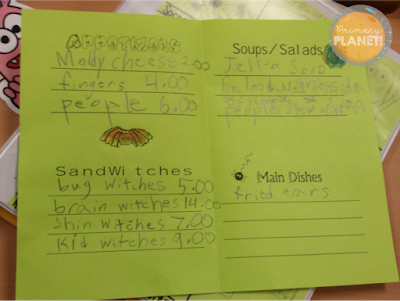 Primary
PLANET!
Appetizers
Moldy cheese 2.00
fingers 4.00
people 6.00
SandWitches
bug witches 5.00
brain witches 14.00
Shin witches 7.00
Kid witches 9.00
Soups/Salads
Jell-o Soup
people
Main Dishes
fried ears